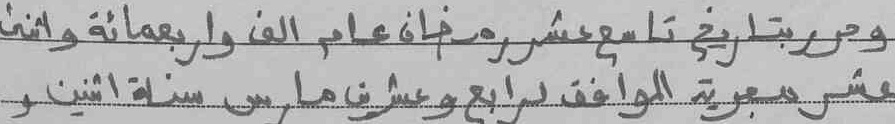 وحرر بتاريخ تاسع عشر رمضان عام الف واربعمائة واثنى
عشر هجرية الموافق لرابع وعشرين مارس سنة اثنين و